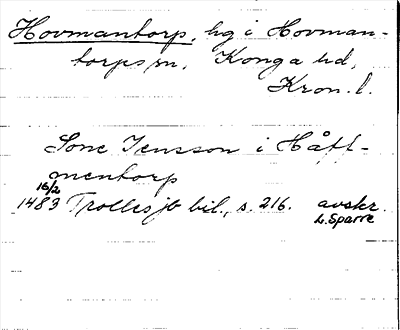 Hovmantorp, hg i Hovman-
torps sn, Konga hd,
Kron. l.
Sone Jensson i Håft-
mentorp
16/2
1483 Trolles jb bil., s. 216. avskr.
L. Sparre